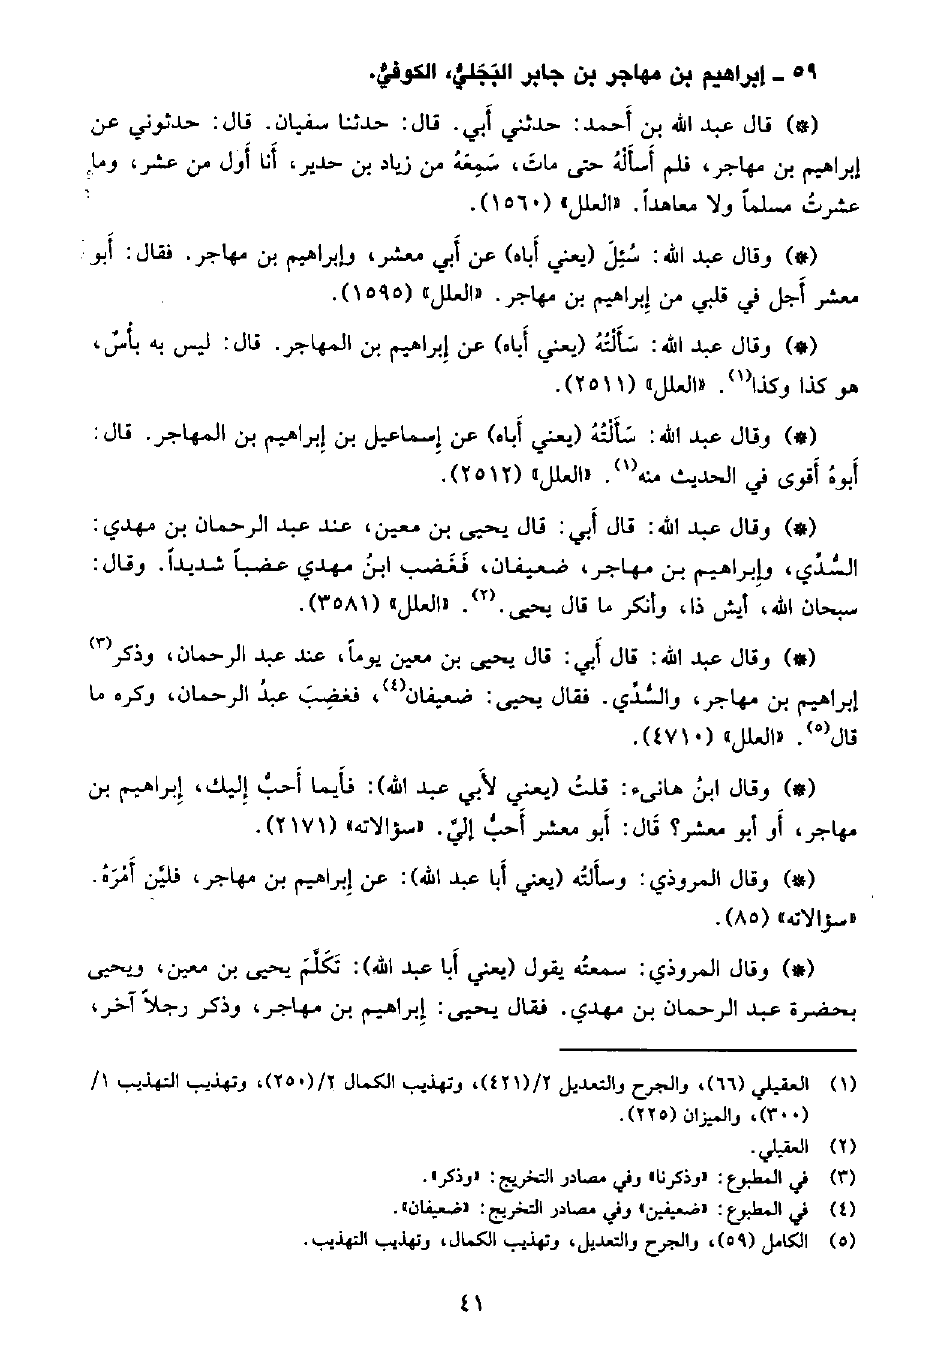 ٥٩ ـ إبراهيم بن مهاجر بن جابر البَجَليُّ، الكوفيُّ.
(*) قال عبد الله بن أحمد: حدثني أبي. قال: حدثنا سفيان. قال: حدثوني عن
إبراهيم بن مهاجر، فلم أَسأَلْهُ حتى ماتَ، سَمِعَهُ من زياد بن حدير، أَنا أَول من عشر، وما
عشرتُ مسلماً ولا معاهداً. «العلل» (١٥٦٠).
(*) وقال عبد الله: سُئِلَ (يعني أَباه) عن أَبي معشر، وإبراهيم بن مهاجر. فقال: أَبو
معشر أَجل في قلبي من إِبراهيم بن مهاجر. «العلل» (١٥٩٥).
(*) وقال عبد الله: سَأَلْتُهُ (يعني أَباه) عن إِبراهيم بن المهاجر. قال: ليس به بأْسٌ،
هو كذا وكذا(١). «العلل» (٢٥١١).
(*) وقال عبد الله: سَأَلْتُهُ (يعني أَباه) عن إِسماعيل بن إِبراهيم بن المهاجر. قال:
أَبوهُ أَقوى في الحديث منه(١). «العلل» (٢٥١٢).
(*) وقال عبد الله: قال أَبي: قال يحيى بن معين، عند عبد الرحمان بن مهدي:
السُّدِّي، وإِبراهيم بن مهاجر، ضعيفان، فَغَضب ابنُ مهدي عضباً شديداً. وقال:
سبحان الله، أَيش ذا، وأَنكر ما قال يحيى.(٢). «العلل» (٣٥٨١).
(*) وقال عبد الله: قال أَبي: قال يحيى بن معين يوماً، عند عبد الرحمان، وذكر(٣)
إِبراهيم بن مهاجر، والسُّدِّي. فقال يحيى: ضعيفان(٤)، فغضِبَ عبدُ الرحمان، وكره ما
قال(٥). «العلل» (٤٧١٠).
(*) وقال ابنُ هانىء: قلتُ (يعني لأَبي عبد الله): فأَيما أَحبُّ إِليك، إِبراهيم بن
مهاجر، أَو أَبو معشر؟ قَال: أَبو معشر أَحبُّ إليَّ. «سؤالاته» (٢١٧١).
(*) وقال المروذي: وسأَلتُه (يعني أَبا عبد الله): عن إِبراهيم بن مهاجر، فليَّن أَمْرَهُ.
«سؤالاته» (٨٥).
(*) وقال المروذي: سمعتُه يقول (يعني أَبا عبد الله): تَكَلَّمَ يحيى بن معين، ويحيى
بحضرة عبد الرحمان بن مهدي. فقال يحيى: إِبراهيم بن مهاجر، وذكر رجلاً آخر،
(١) العقيلي (٦٦)، والجرح والتعديل ٢/(٤٢١)، وتهذيب الكمال ٢/(٢٥٠)، وتهذيب التهذيب ١/
(٣٠٠)، والميزان (٢٢٥).
(٢) العقيلي.
(٣) في المطبوع: «وذكرنا» وفي مصادر التخريج: «وذكر».
(٤) في المطبوع: «ضعيفين» وفي مصادر التخريج: «ضعيفان».
(٥) الكامل (٥٩)، والجرح والتعديل، وتهذيب الكمال، وتهذيب التهذيب.
٤١